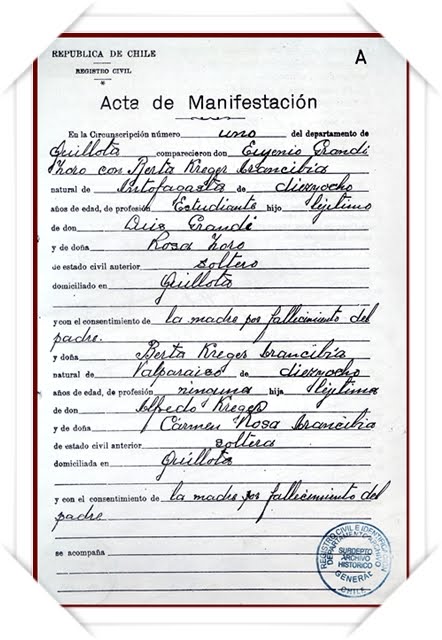 REPUBLICA DE CHILE
A
REGISTRO CIVIL
Acta de Manifestación
En la Circunscripción número uno del departamento de
Quillota comparecieron don Eugenio Grandi
Zoro con Berta Kreger Arancibia
natural de Antofagasta de dieznocho
años de edad, de profesión Estudiante hijo lejítimo
de don Luis Grandi
y de doña Rosa Zoro
de estado civil anterior soltero
domiciliado en Quillota
y con el consentimiento de la madre por fallecimiento del
padre.
y doña Berta Kreger Arancibia
natural de Valparaiso de dieznocho
años de edad, de profesión ninguna hija lejítima
de don Alfredo Kreger
y de doña Cármen Rosa Arancibia
de estado civil anterior soltera
domiciliada en Quillota
y con el consentimiento de la madre por fallecimiento del
padre
se acompaña
REGISTRO CIVIL E IDENTIFICACION
DEPARTAMENTO ARCHIVO
SUBDEPTO
ARCHIVO
HISTORICO
GENERAL
CHILE